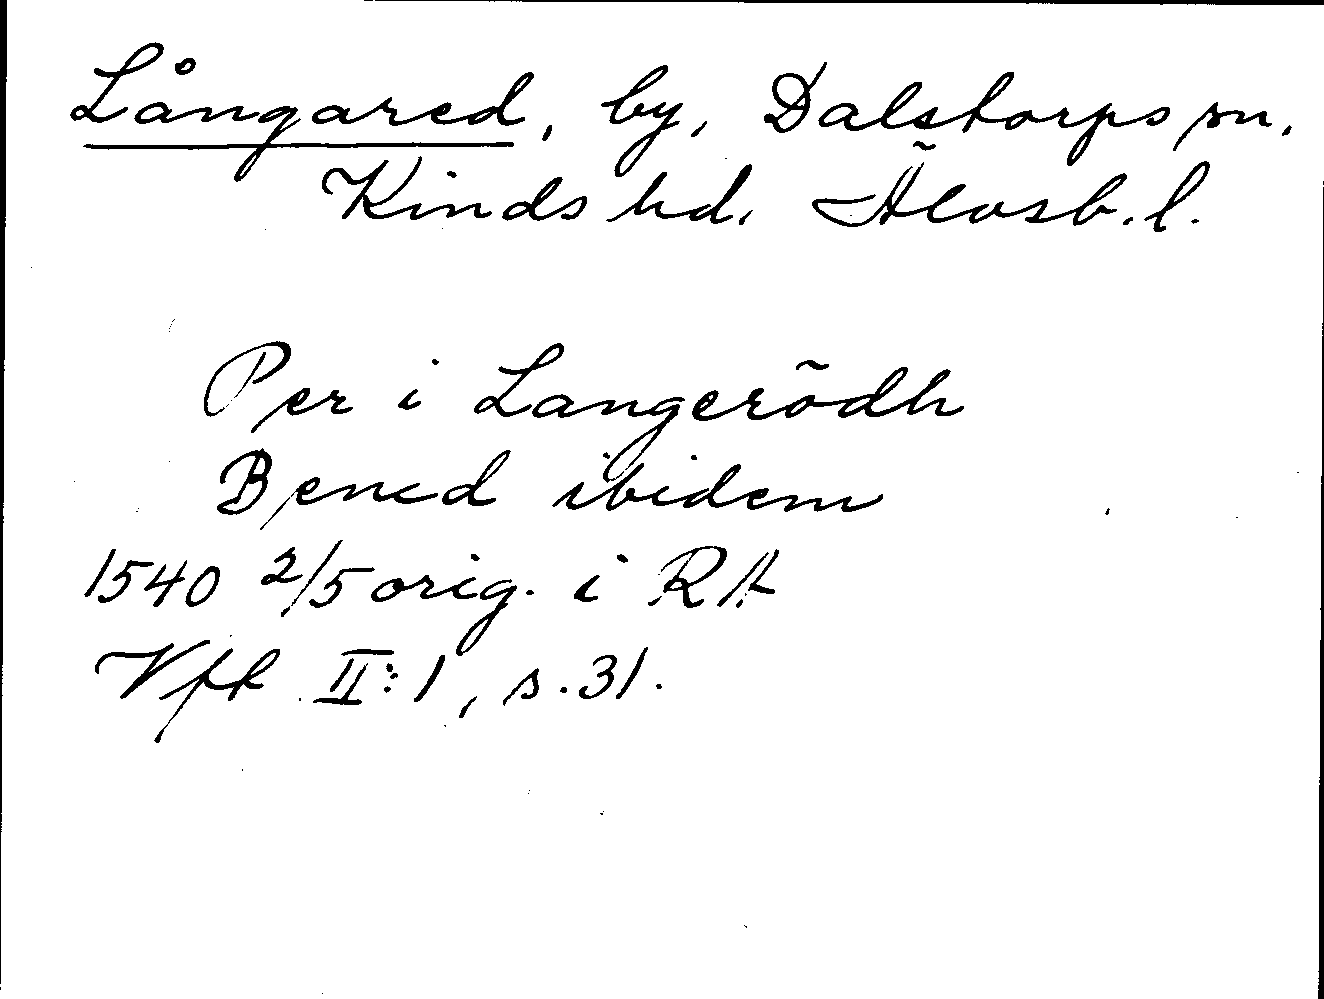 Långared, by, Dalstorps sn.
Kinds hd. Älvsb. l.
Per i Langerödh
Bened ibidem
1540 2/5 orig. i RA
Vfk II:1, s. 31.